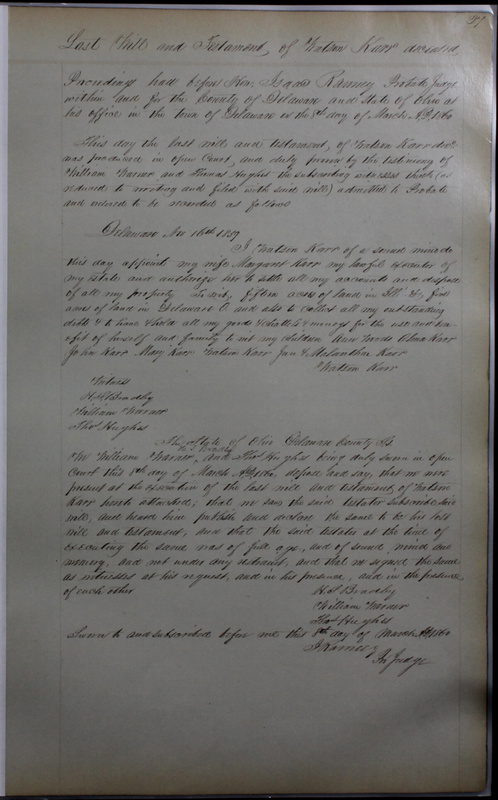 Last Will and Testament, of Watson Karr deceased
Proceedings had before Hon. Isaac Ranney Probate Judge
within and for the County of Delaware and State of Ohio at
his office in the town of Delaware on the 8th day of March AD 1860
This day the last will and testament, of Watson Karr decd
was produced in open Court, and duly proven by the testimony of
William Warner and Thomas Hughs the subscribing witnesses thereto (as
reduced to writing and filed with said will) admitted to Probate
and ordered to be recorded as follows
Delaware Nov 16th 1859
I Watson Karr of a sound minde
this day appoint my wife Margaret Karr my lawful Executor of
my estate and authorize her to settle all my accounts and dispose
of all my property. To wit, fifteen acres of land in Ill. &
acres of land in Delaware O. and also to collect all my outstanding
debts & to have & hold all my goods & chattels & moneys for the use and ben
efit of herself and family to wit my children Karr
John Karr Mary Karr Watson Karr Jun & Karr
Watson Karr
Witness
H S Bradley
William Warner
Thos Hughes
The State of Ohio Delaware County Ss
We William Warner, H S Bradley and Thos Hughes being duly sworn in open
Court this 8th day of March AD 1860, depose and say, that we were
present at the execution of the last will and testament, of Watson
Karr hereto attached; that we saw the said testator subscribe said
will, and heard him publish and declare the same to be his last
will and testament, and that the said testator at the time of
executing the same was of full age, and of sound mind and
memory, and not under any restraint, and that we signed the same
as witnesses at his request, and in his presence, and in the presence
of each other
H S Bradley
William Warner
Thos Hughes
Sworn to and subscribed before me this 8th day of March AD 1860
I Ranney
Judge